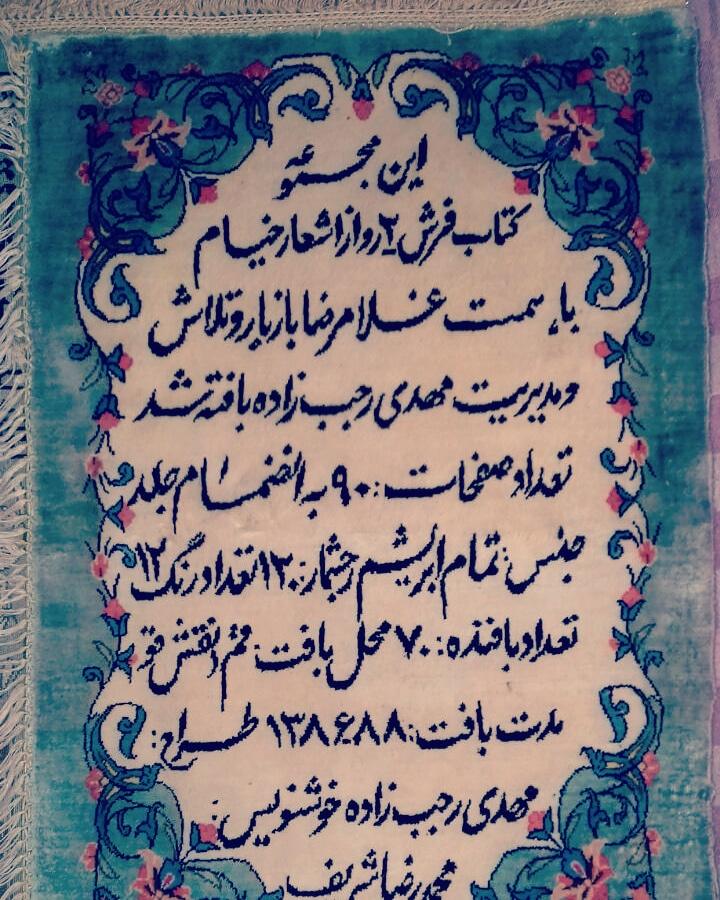 این مجموعه
کتاب فرش ۲ رو از اشعار خیام
با همت غلامرضا بازیار و تلاش
و مدیریت مهدی رجب زاده بافته شد
تعداد صفحات: ۹۰ به انضمام جلد
جنس: تمام ابریشم رجشمار: ۱۲۰ تعداد رنگ ۱۲
تعداد بافنده: ۷۰ محل بافت: قم نقش
مدت بافت: ۱۳۸۶۸۸ طراح:
مهدی رجب زاده خوشنویس:
محمدرضا شریف